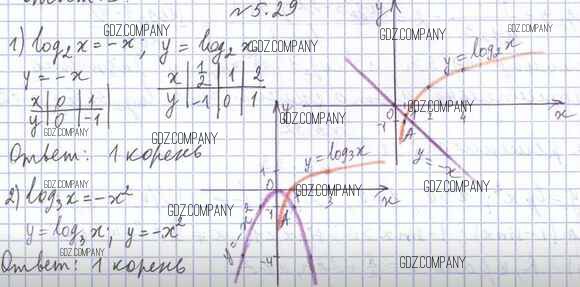 №5.29
1) log₂x = -x, y = log₂x
y = -x
x | 0 | 1
y | 0 | -1
x | 1/2 | 1 | 2
y | -1 | 0 | 1
Ответ: 1 корень
y
y = log₂x
0 2 4
-1
A
x
y = -x
2) log₃x = -x²
y = log₃x; y = -x²
Ответ: 1 корень
y
1
y = log₃x
0 3
x
A
1
y = -x²
-4
GDZ.COMPANY
GDZ.COMPANY
GDZ.COMPANY
GDZ.COMPANY
GDZ.COMPANY
GDZ.COMPANY
GDZ.COMPANY
GDZ.COMPANY
GDZ.COMPANY
GDZ.COMPANY
GDZ.COMPANY
GDZ.COMPANY
GDZ.COMPANY
GDZ.COMPANY